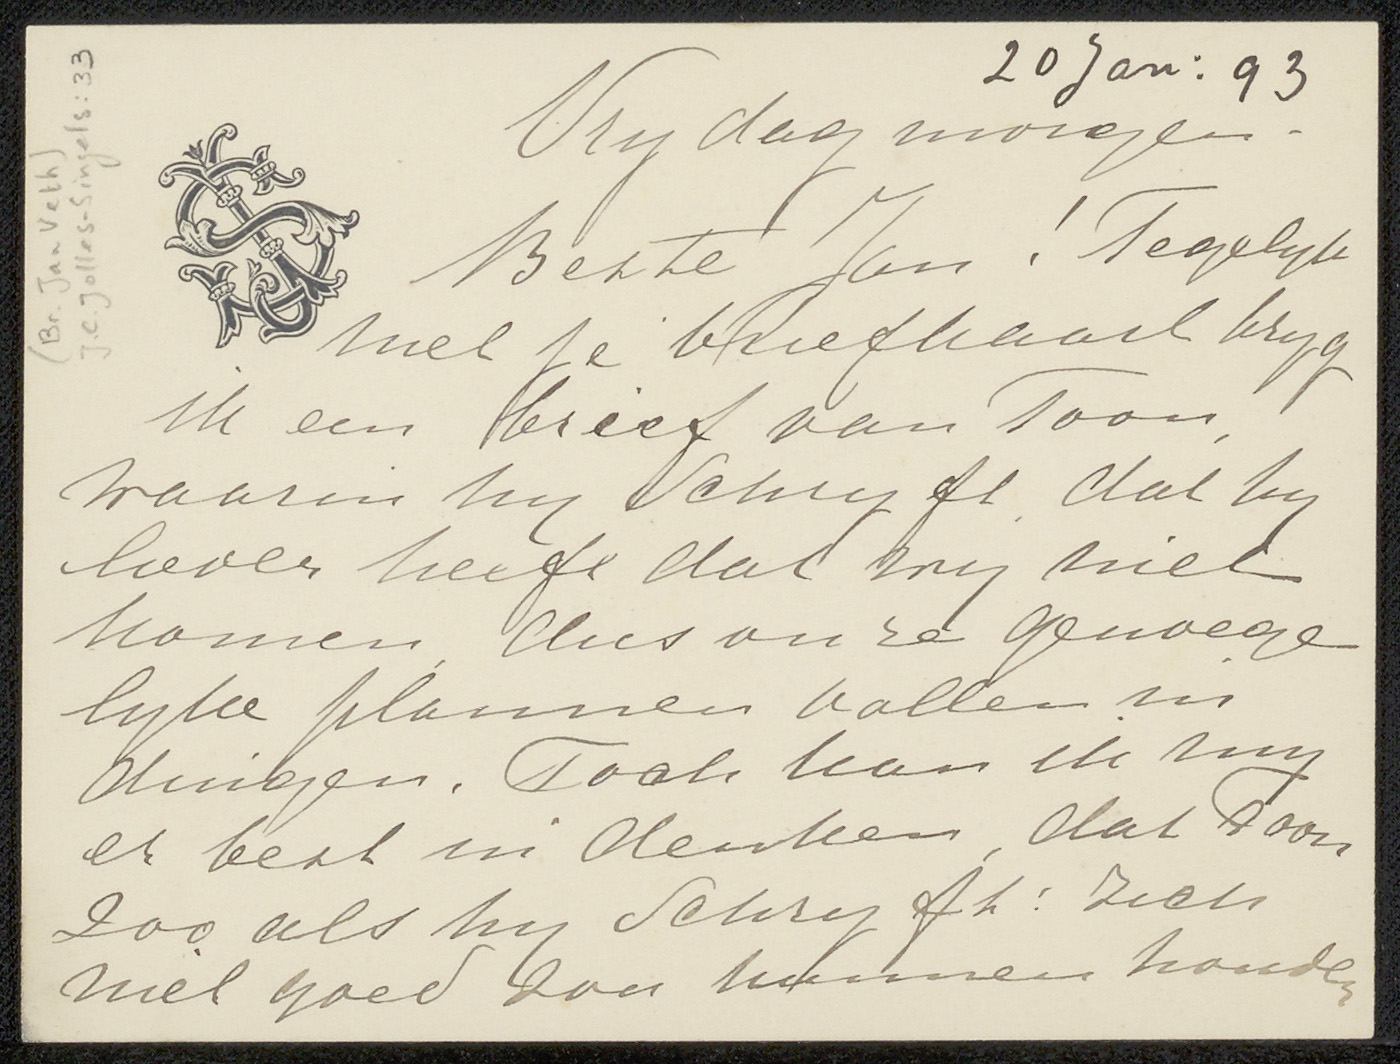 20 Jan: 93
(Br. Jan Veth)
J.C. Jolles-Singels: 33
Vrydag morgen.
Beste Jan! Tegelyk
met je briefkaart kryg
ik een brief van Toon,
waarin hy schryft, dat hy
liever heeft dat wy niet
komen, dus onze genoege
lyke plannen vallen in
duigen. Toch kan ik my
er best in denken, dat Toon
zoo als hy schryft: zich
niet goed zou kunnen houden